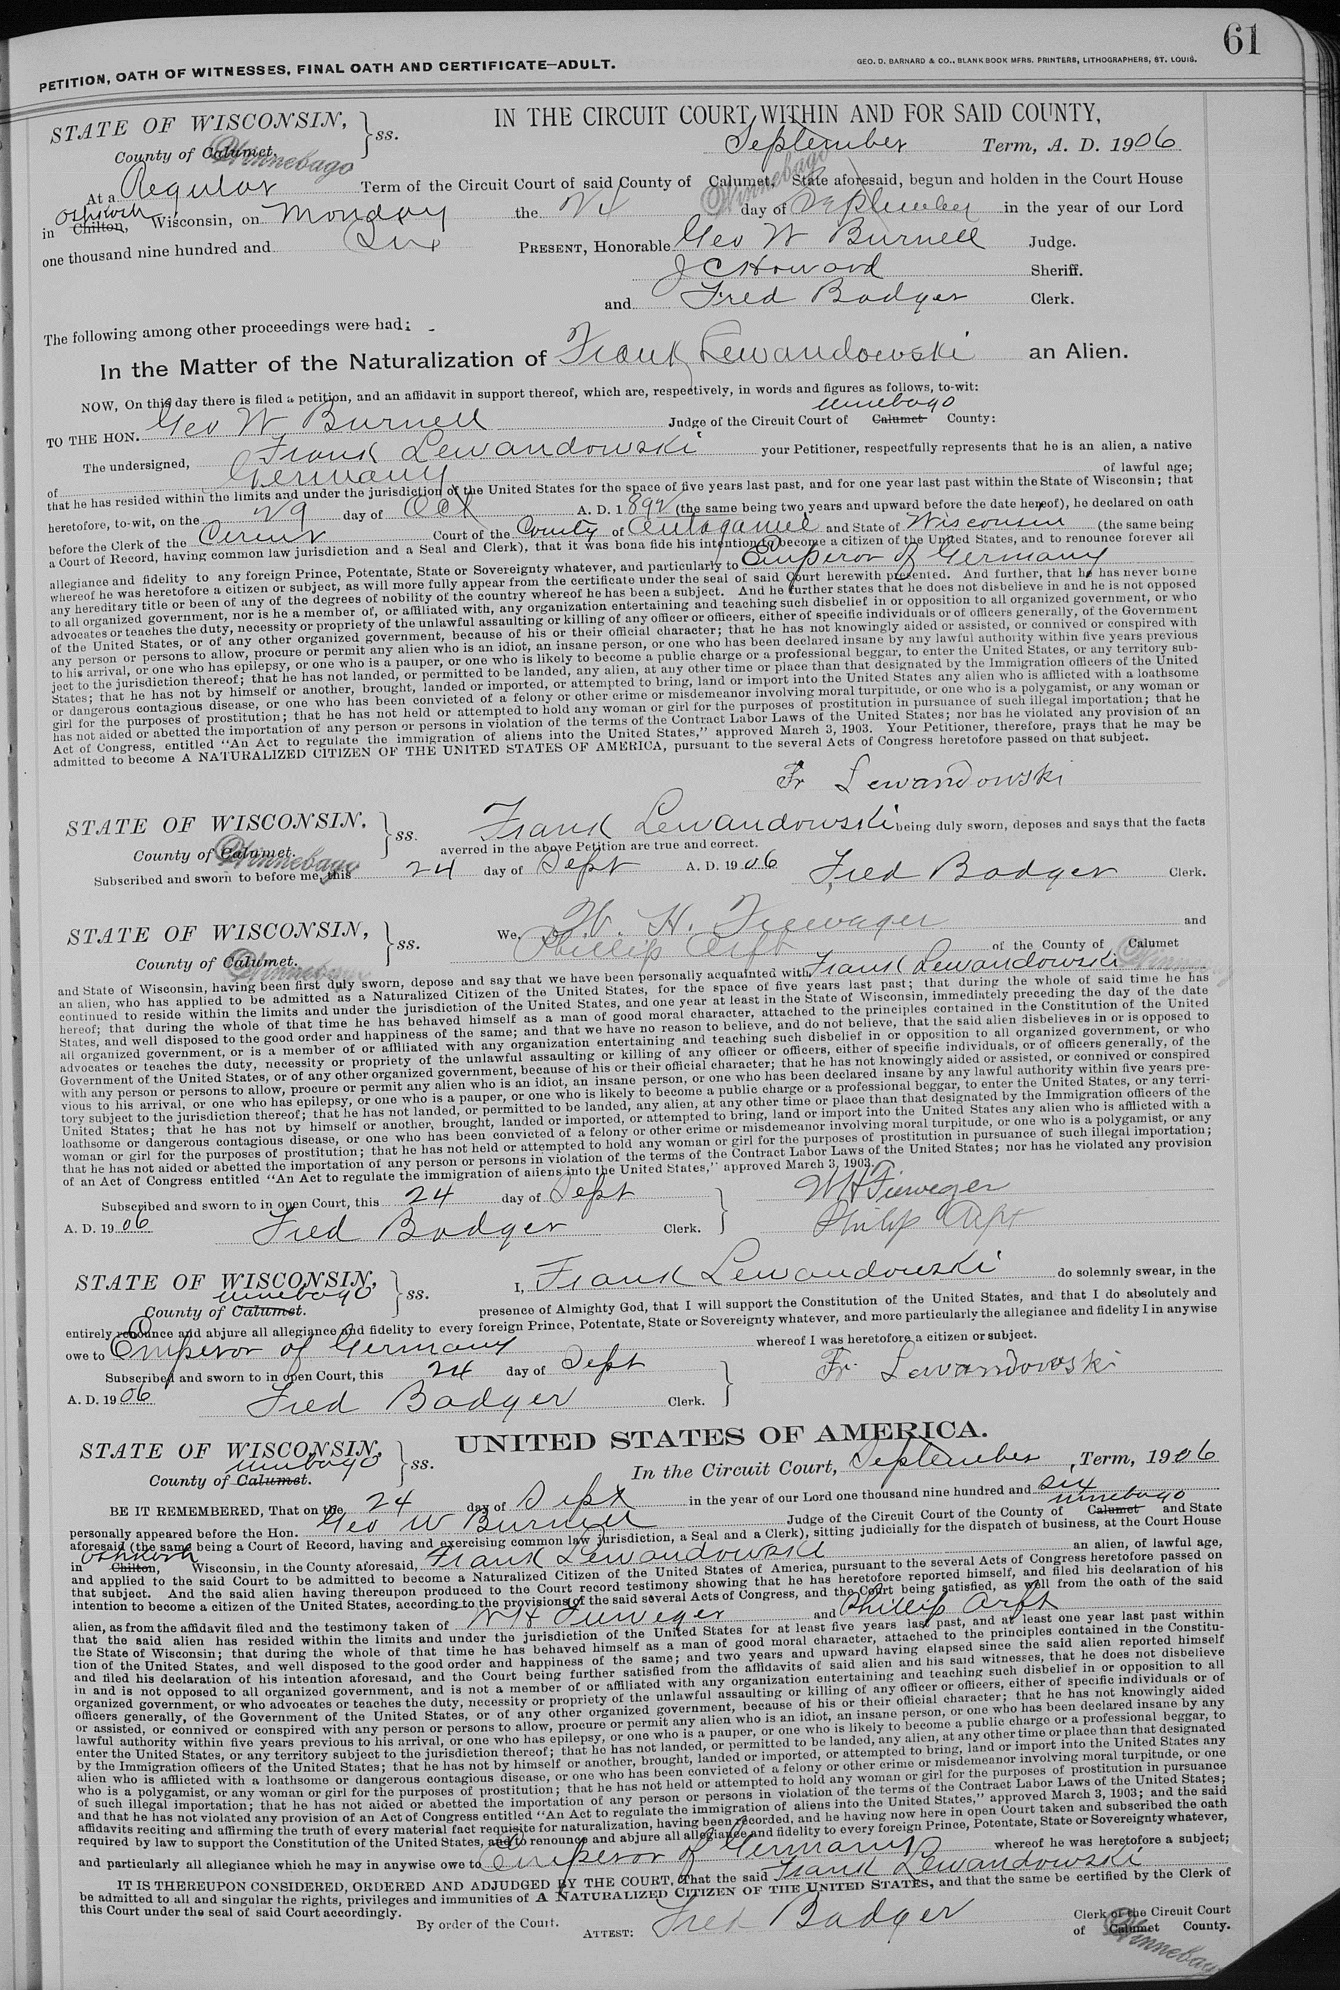 61
PETITION, OATH OF WITNESSES, FINAL OATH AND CERTIFICATE—ADULT.
GEO. D. BARNARD & CO., BLANK BOOK MFRS. PRINTERS, LITHOGRAPHERS, ST. LOUIS.
STATE OF WISCONSIN, } ss. IN THE CIRCUIT COURT WITHIN AND FOR SAID COUNTY,
County of Calumet. Winnebago September Term, A. D. 1906
At a Regular Term of the Circuit Court of said County of Calumet, Winnebago State aforesaid, begun and holden in the Court House
in Chilton, Oshkosh Wisconsin, on Monday the day of September in the year of our Lord
one thousand nine hundred and Six PRESENT, Honorable Geo W Burnell Judge.
J C Howard Sheriff.
and Fred Badger Clerk.
The following among other proceedings were had:
In the Matter of the Naturalization of Frank Lewandowski an Alien.
NOW, On this day there is filed a petition, and an affidavit in support thereof, which are, respectively, in words and figures as follows, to-wit:
TO THE HON. Geo W Burnell Judge of the Circuit Court of Calumet Winnebago County:
The undersigned, Frank Lewandowski your Petitioner, respectfully represents that he is an alien, a native
of Germany of lawful age;
that he has resided within the limits and under the jurisdiction of the United States for the space of five years last past, and for one year last past within the State of Wisconsin; that
heretofore, to-wit, on the 29 day of Oct A. D. 1892 (the same being two years and upward before the date hereof), he declared on oath
before the Clerk of the Circuit Court of the County of Outagamie and State of Wisconsin (the same being
a Court of Record, having common law jurisdiction and a Seal and Clerk), that it was bona fide his intention to become a citizen of the United States, and to renounce forever all
allegiance and fidelity to any foreign Prince, Potentate, State or Sovereignty whatever, and particularly to Emperor of Germany
whereof he was heretofore a citizen or subject, as will more fully appear from the certificate under the seal of said Court herewith presented. And further, that he has never borne
any hereditary title or been of any of the degrees of nobility of the country whereof he has been a subject. And he further states that he does not disbelieve in and he is not opposed
to all organized government, nor is he a member of, or affiliated with, any organization entertaining and teaching such disbelief in or opposition to all organized government, or who
advocates or teaches the duty, necessity or propriety of the unlawful assaulting or killing of any officer or officers, either of specific individuals or of officers generally, of the Government
of the United States, or of any other organized government, because of his or their official character; that he has not knowingly aided or assisted, or connived or conspired with
any person or persons to allow, procure or permit any alien who is an idiot, an insane person, or one who has been declared insane by any lawful authority within five years previous
to his arrival, or one who has epilepsy, or one who is a pauper, or one who is likely to become a public charge or a professional beggar, to enter the United States, or any territory sub-
ject to the jurisdiction thereof; that he has not landed, or permitted to be landed, any alien, at any other time or place than that designated by the Immigration officers of the United
States; that he has not by himself or another, brought, landed or imported, or attempted to bring, land or import into the United States any alien who is afflicted with a loathsome
or dangerous contagious disease, or one who has been convicted of a felony or other crime or misdemeanor involving moral turpitude, or one who is a polygamist, or any woman or
girl for the purposes of prostitution; that he has not held or attempted to hold any woman or girl for the purposes of prostitution in pursuance of such illegal importation; that he
has not aided or abetted the importation of any person or persons in violation of the terms of the Contract Labor Laws of the United States; nor has he violated any provision of an
Act of Congress, entitled "An Act to regulate the immigration of aliens into the United States," approved March 3, 1903. Your Petitioner, therefore, prays that he may be
admitted to become A NATURALIZED CITIZEN OF THE UNITED STATES OF AMERICA, pursuant to the several Acts of Congress heretofore passed on that subject.
Fr Lewandowski
STATE OF WISCONSIN. } ss. Frank Lewandowski being duly sworn, deposes and says that the facts
County of Calumet. Winnebago averred in the above Petition are true and correct.
Subscribed and sworn to before me, this 24 day of Sept A. D. 1906 Fred Badger Clerk.
STATE OF WISCONSIN, } ss. We, W. H. Fieweger and
County of Calumet. Winnebago Phillip Arft of the County of Calumet Winnebago
and State of Wisconsin, having been first duly sworn, depose and say that we have been personally acquainted with Frank Lewandowski
an alien, who has applied to be admitted as a Naturalized Citizen of the United States, for the space of five years last past; that during the whole of said time he has
continued to reside within the limits and under the jurisdiction of the United States, and one year at least in the State of Wisconsin, immediately preceding the day of the date
hereof; that during the whole of that time he has behaved himself as a man of good moral character, attached to the principles contained in the Constitution of the United
States, and well disposed to the good order and happiness of the same; and that we have no reason to believe, and do not believe, that the said alien disbelieves in or is opposed to
all organized government, or is a member of or affiliated with any organization entertaining and teaching such disbelief in or opposition to all organized government, or who
advocates or teaches the duty, necessity or propriety of the unlawful assaulting or killing of any officer or officers, either of specific individuals, or of officers generally, of the
Government of the United States, or of any other organized government, because of his or their official character; that he has not knowingly aided or assisted, or connived or conspired
with any person or persons to allow, procure or permit any alien who is an idiot, an insane person, or one who has been declared insane by any lawful authority within five years pre-
vious to his arrival, or one who has epilepsy, or one who is a pauper, or one who is likely to become a public charge or a professional beggar, to enter the United States, or any terri-
tory subject to the jurisdiction thereof; that he has not landed, or permitted to be landed, any alien, at any other time or place than that designated by the Immigration officers of the
United States; that he has not by himself or another, brought, landed or imported, or attempted to bring, land or import into the United States any alien who is afflicted with a
loathsome or dangerous contagious disease, or one who has been convicted of a felony or other crime or misdemeanor involving moral turpitude, or one who is a polygamist, or any
woman or girl for the purposes of prostitution; that he has not held or attempted to hold any woman or girl for the purposes of prostitution in pursuance of such illegal importation;
that he has not aided or abetted the importation of any person or persons in violation of the terms of the Contract Labor Laws of the United States; nor has he violated any provision
of an Act of Congress entitled "An Act to regulate the immigration of aliens into the United States," approved March 3, 1903.
Subscribed and sworn to in open Court, this 24 day of Sept } W H Fieweger
A. D. 1906 Fred Badger Clerk. Philip Arft
STATE OF WISCONSIN, } ss. I, Frank Lewandowski do solemnly swear, in the
County of Calumet. Winnebago presence of Almighty God, that I will support the Constitution of the United States, and that I do absolutely and
entirely renounce and abjure all allegiance and fidelity to every foreign Prince, Potentate, State or Sovereignty whatever, and more particularly the allegiance and fidelity I in anywise
owe to Emperor of Germany whereof I was heretofore a citizen or subject.
Subscribed and sworn to in open Court, this 24 day of Sept } Fr. Lewandowski
A. D. 1906 Fred Badger Clerk.
UNITED STATES OF AMERICA.
STATE OF WISCONSIN, } ss.
County of Calumet. Winnebago In the Circuit Court, September Term, 1906
BE IT REMEMBERED, That on the 24 day of Sept in the year of our Lord one thousand nine hundred and six
personally appeared before the Hon. Geo W Burnell Judge of the Circuit Court of the County of Calumet Winnebago and State
aforesaid (the same being a Court of Record, having and exercising common law jurisdiction, a Seal and a Clerk), sitting judicially for the dispatch of business, at the Court House
in Chilton, Oshkosh Wisconsin, in the County aforesaid, Frank Lewandowski an alien, of lawful age,
and applied to the said Court to be admitted to become a Naturalized Citizen of the United States of America, pursuant to the several Acts of Congress heretofore passed on
that subject. And the said alien having thereupon produced to the Court record testimony showing that he has heretofore reported himself, and filed his declaration of his
intention to become a citizen of the United States, according to the provisions of the said several Acts of Congress, and the Court being satisfied, as well from the oath of the said
alien, as from the affidavit filed and the testimony taken of W H Fieweger and Phillip Arft
that the said alien has resided within the limits and under the jurisdiction of the United States for at least five years last past, and at least one year last past within
the State of Wisconsin; that during the whole of that time he has behaved himself as a man of good moral character, attached to the principles contained in the Constitu-
tion of the United States, and well disposed to the good order and happiness of the same; and two years and upward having elapsed since the said alien reported himself
and filed his declaration of his intention aforesaid, and the Court being further satisfied from the affidavits of said alien and his said witnesses, that he does not disbelieve
in and is not opposed to all organized government, and is not a member of or affiliated with any organization entertaining and teaching such disbelief in or opposition to all
organized government, or who advocates or teaches the duty, necessity or propriety of the unlawful assaulting or killing of any officer or officers, either of specific individuals or of
officers generally, of the Government of the United States, or of any other organized government, because of his or their official character; that he has not knowingly aided
or assisted, or connived or conspired with any person or persons to allow, procure or permit any alien who is an idiot, an insane person, or one who has been declared insane by any
lawful authority within five years previous to his arrival, or one who has epilepsy, or one who is a pauper, or one who is likely to become a public charge or a professional beggar, to
enter the United States, or any territory subject to the jurisdiction thereof; that he has not landed, or permitted to be landed, any alien, at any other time or place than that designated
by the Immigration officers of the United States; that he has not by himself or another, brought, landed or imported, or attempted to bring, land or import into the United States any
alien who is afflicted with a loathsome or dangerous contagious disease, or one who has been convicted of a felony or other crime or misdemeanor involving moral turpitude, or one
who is a polygamist, or any woman or girl for the purposes of prostitution; that he has not held or attempted to hold any woman or girl for the purposes of prostitution in pursuance
of such illegal importation; that he has not aided or abetted the importation of any person or persons in violation of the terms of the Contract Labor Laws of the United States;
and that he has not violated any provision of an Act of Congress entitled "An Act to regulate the immigration of aliens into the United States," approved March 3, 1903; and the said
affidavits reciting and affirming the truth of every material fact requisite for naturalization, having been recorded, and he having now here in open Court taken and subscribed the oath
required by law to support the Constitution of the United States, and to renounce and abjure all allegiance and fidelity to every foreign Prince, Potentate, State or Sovereignty whatever,
and particularly all allegiance which he may in anywise owe to Emperor of Germany whereof he was heretofore a subject;
IT IS THEREUPON CONSIDERED, ORDERED AND ADJUDGED BY THE COURT, That the said Frank Lewandowski
be admitted to all and singular the rights, privileges and immunities of A NATURALIZED CITIZEN OF THE UNITED STATES, and that the same be certified by the Clerk of
this Court under the seal of said Court accordingly.
By order of the Court. ATTEST: Fred Badger Clerk of the Circuit Court
of Calumet Winnebago County.